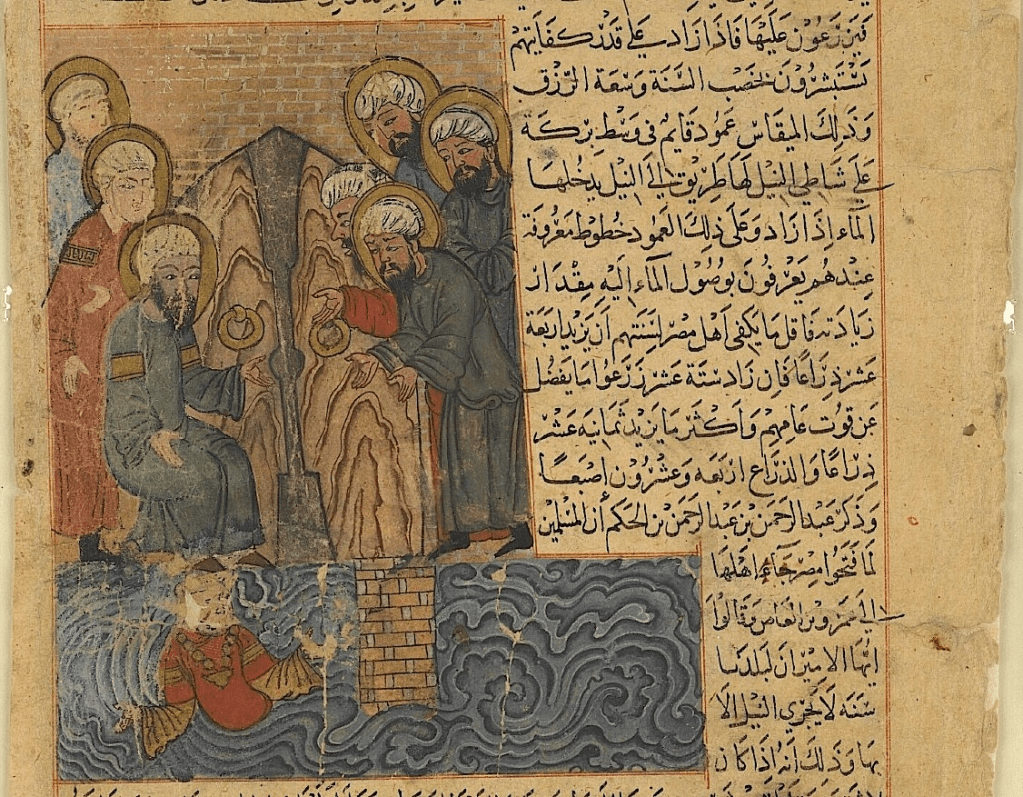 فيزرعون عليها فاذا زادت على قدر كفايتهم
تستبشرون بخصب السنة وسعة الرزق
وذلك المقياس عمود قايم فى وسط بركة
على شاطي النيل لها طريق الى النيل يدخلها
الماء اذا زاد وعلى ذلك العمود خطوط معروفة
عندهم يعرفون بوصول الماء اليه مقدار
زيادته فاقل ما يكفي اهل مصر لسنتهم ان يزيد اربعة
عشر ذراعا فان زاد ستة عشر زرعوا ما يفضل
عن قوت عامهم واكثر ما يزيد ثمانيه عشر
ذراعا والذراع اربعه وعشرون اصبعا
وذكر عبد الرحمن بن عبد الرحمن بن الحكم أن المسلمين
لما فتحوا مصر جاء اهلها
الى عمرو بن العاص وقالوا
ايها الامير ان لبلدنا
سنه لا يجري النيل الا
بها وذلك أنه اذا كان